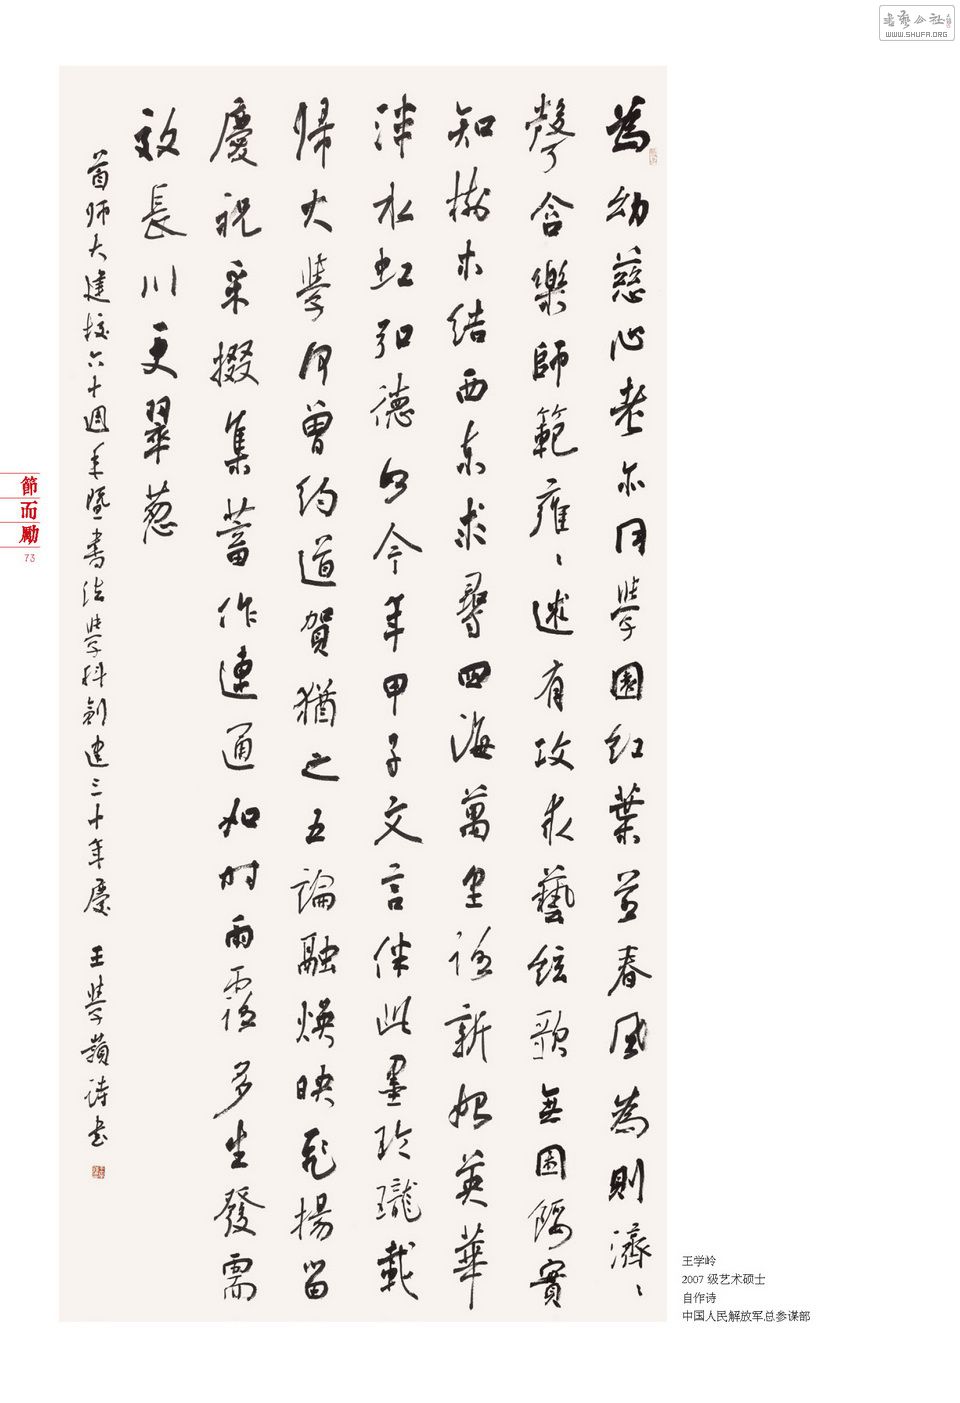 書藝公社
WWW.SHUFA.ORG
為幼慈心老亦同學園紅葉並春風為則濟〻
聲含樂師範雍〻述有攻求藝絃歌無困餒實
知樹木結西東求尋四海萬里誼新妝英華
津水虹弘德如今年甲子文言伴此墨玲瓏載
歸大學何曾約道賀猶之五論融煥映彪揚留
慶祝采掇集蓄作連通如時雨霑多生發需
效長川更翠蔥
首师大建校六十週年暨書法學科創建三十年慶 王學嶺詩書
節而勵
73
王学岭
2007 级艺术硕士
自作诗
中国人民解放军总参谋部